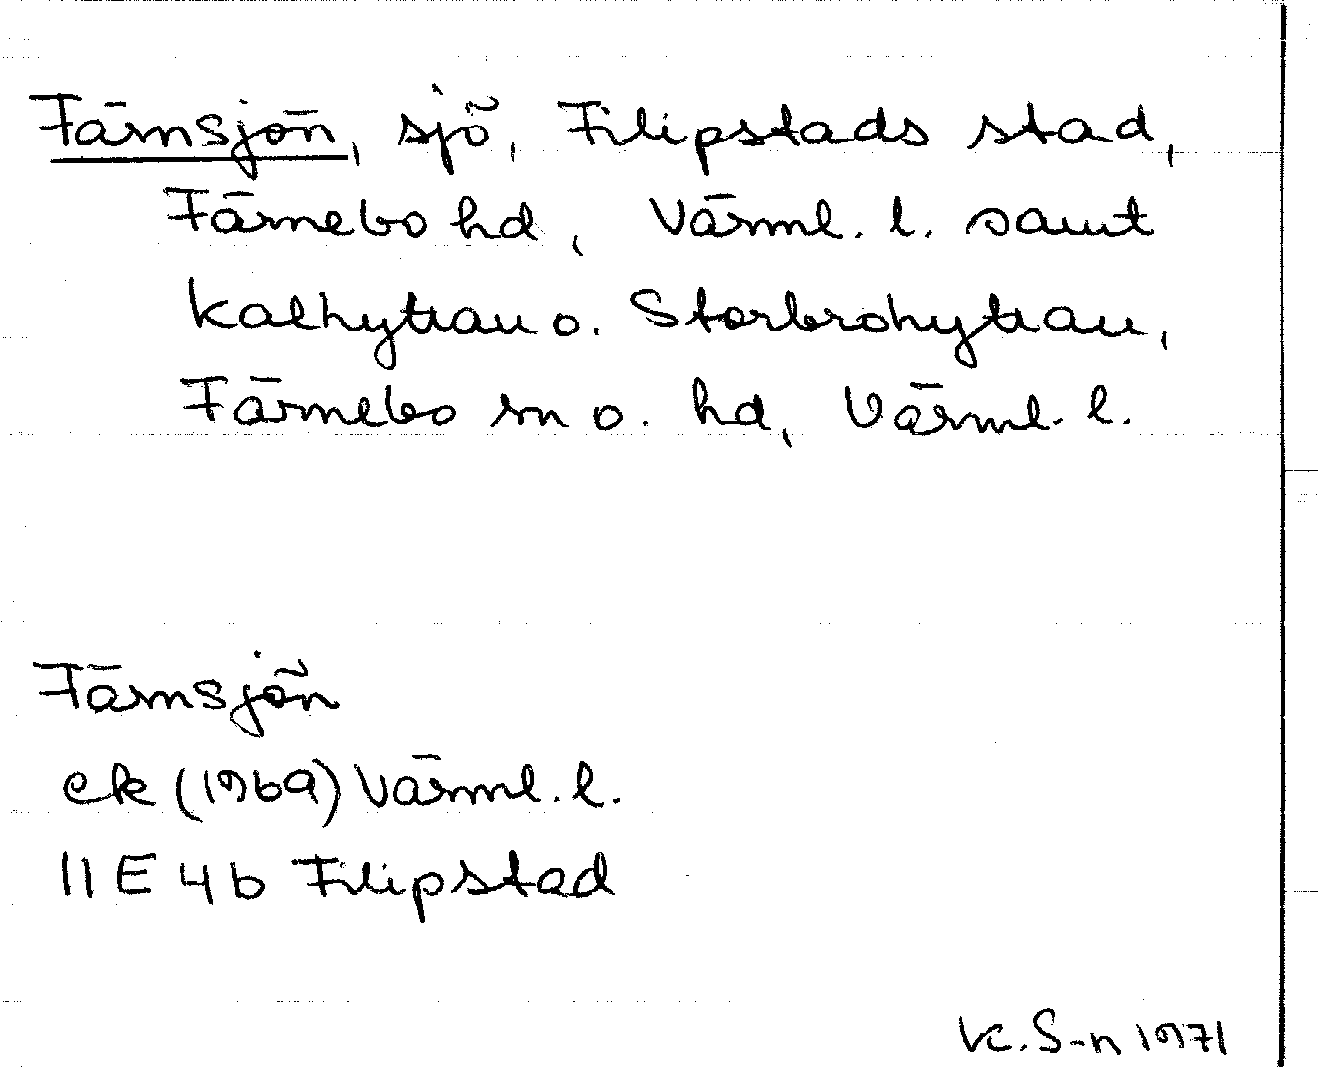 Färnsjön, sjö, Filipstads stad,
Färnebo hd, Värml. l. samt
Kalhyttan o. Storbrohyttan,
Färnebo sn o. hd, Värml. l.
Färnsjön
ek (1969) Värml. l.
11E 4b Filipstad
K. S-n 1971